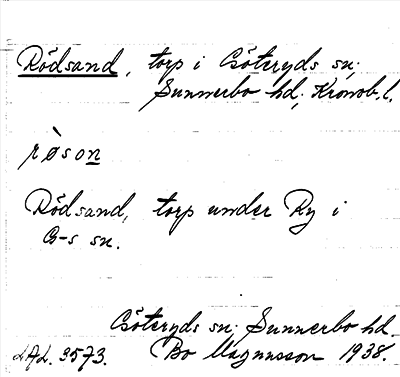 Rödsand, torp i Göteryds sn;
Sunnerbo hd; Kronob. l.
rø̀son
Rödsand, torp under Ry i
G-s sn.
Göteryds sn; Sunnerbo hd.
LAL. 3573. Bo Magnusson 1938.